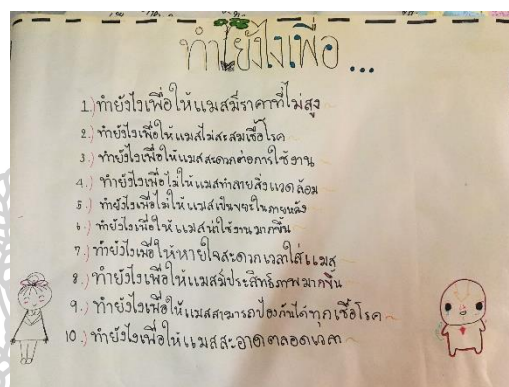 ทำยังไงเพื่อ...
1.) ทำยังไงเพื่อให้แมสมีราคาที่ไม่สูง
2.) ทำยังไงเพื่อให้แมสไม่สะสมเชื้อโรค
3.) ทำยังไงเพื่อให้แมสสะดวกต่อการใช้งาน
4.) ทำยังไงเพื่อไม่ให้แมสทำลายสิ่งแวดล้อม
5.) ทำยังไงเพื่อไม่ให้แมสเป็นขยะในภายหลัง
6.) ทำยังไงเพื่อให้แมสน่าใช้งานมากขึ้น
7.) ทำยังไงเพื่อให้หายใจสะดวกเวลาใส่แมส
8.) ทำยังไงเพื่อให้แมสมีประสิทธิภาพมากขึ้น
9.) ทำยังไงเพื่อให้แมสสามารถป้องกันได้ทุกเชื้อโรค
10.) ทำยังไงเพื่อให้แมสสะอาดตลอดเวลา